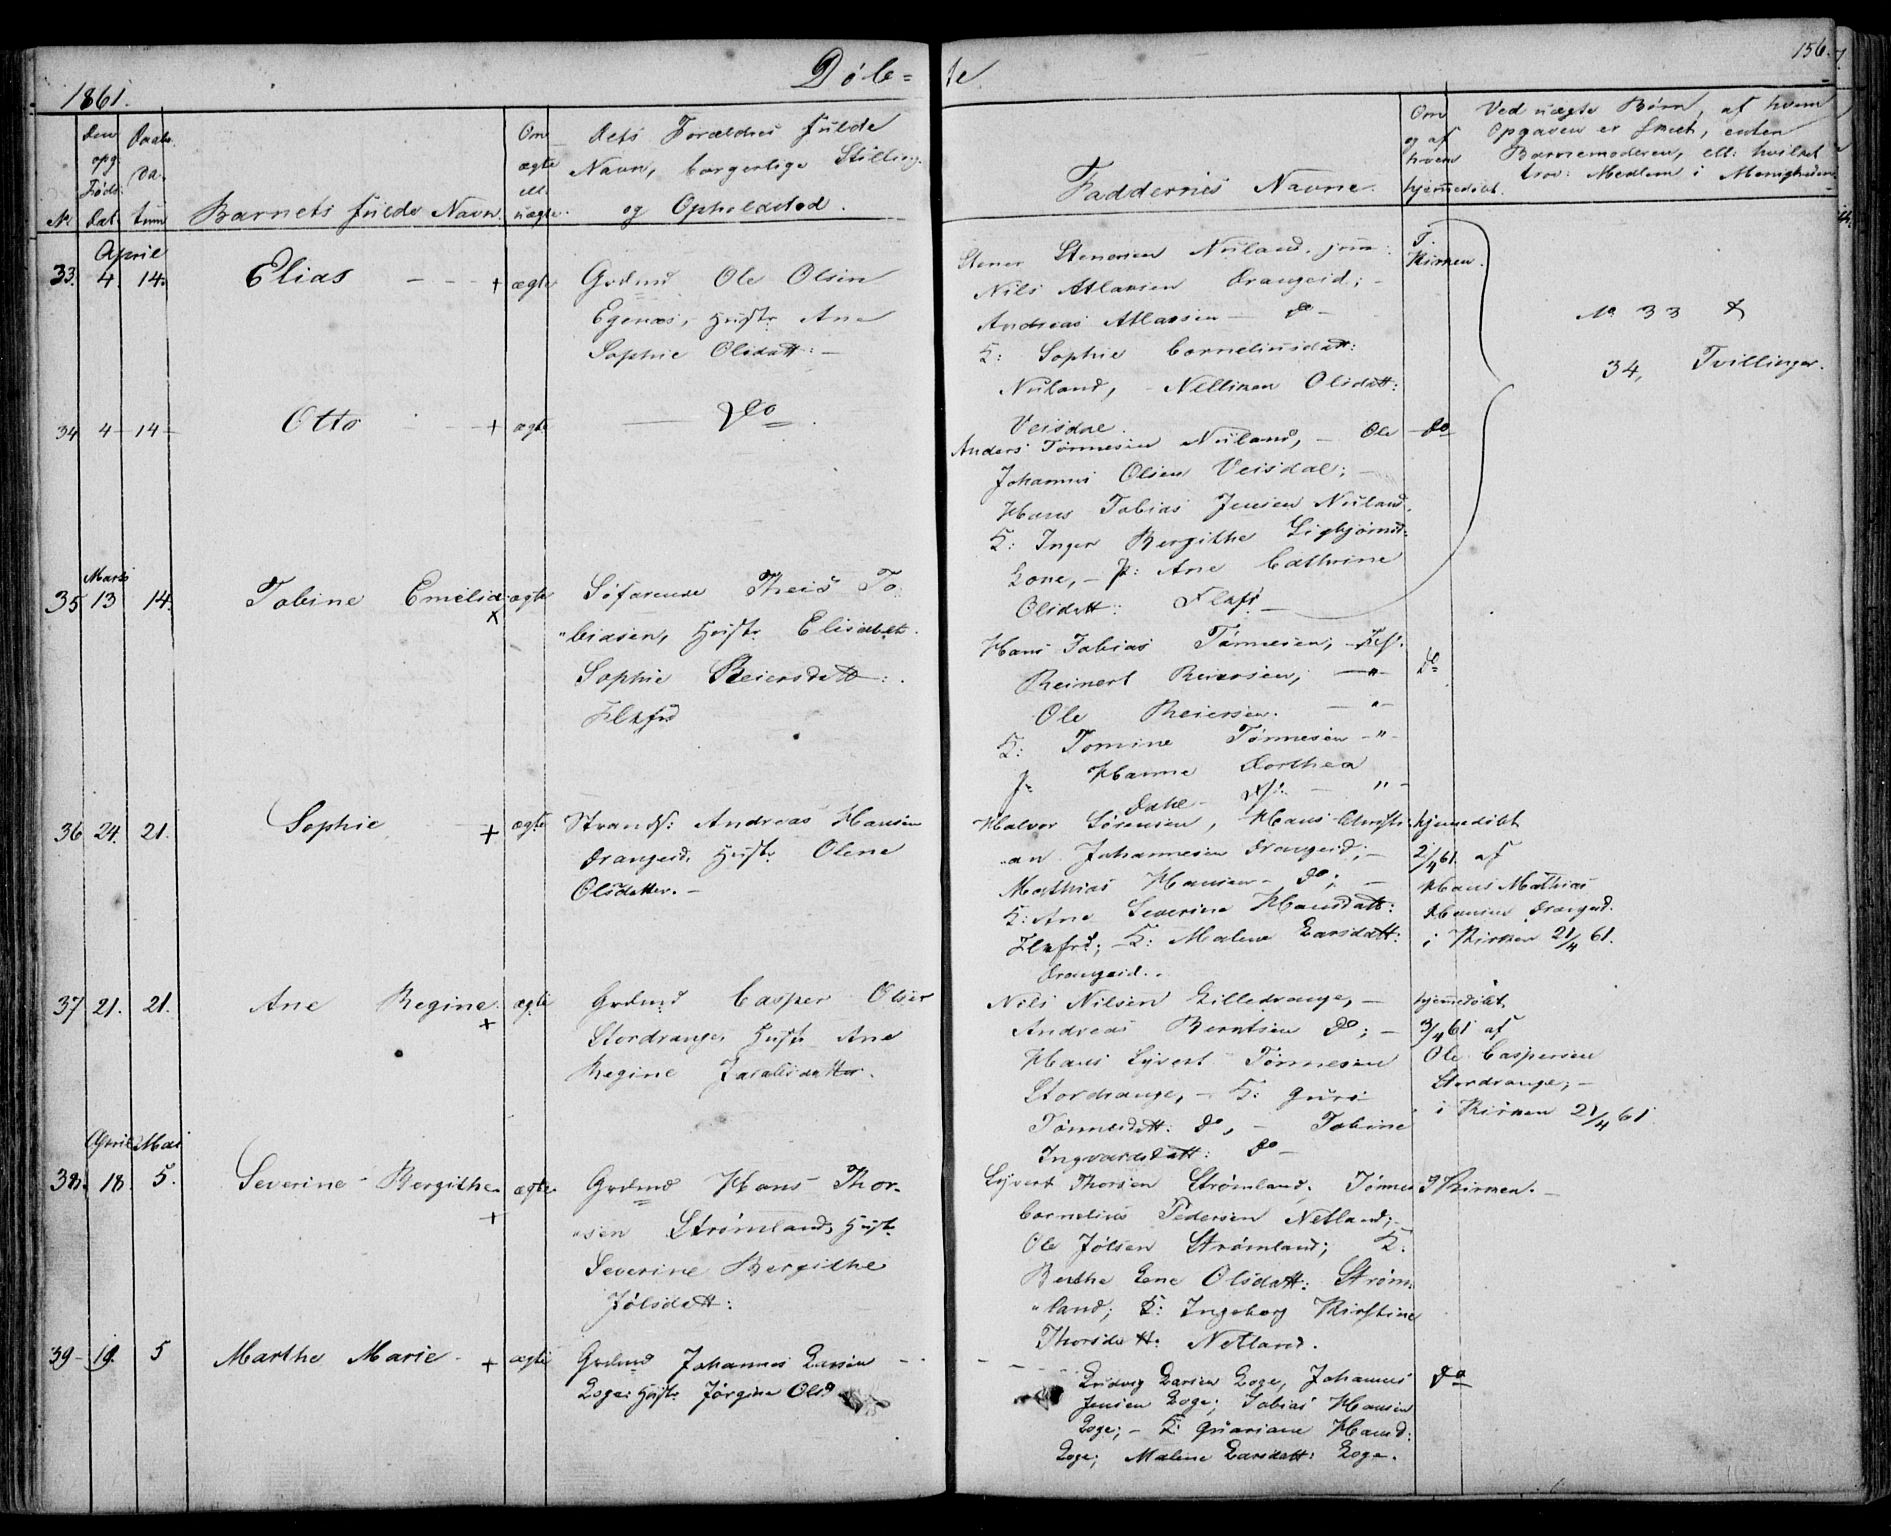 1861.
Døb=
te
156.
No
Den opg. Føds. Dat
Daabs Da- tum
Barnets fulde Navn.
Om ægte ell. uægte.
Dets Forældres fulde
Navn, borgerlige Stilling
og Opholdsted.
Faddernes Navne.
Om og af hvem hjemmedøbt.
Ved uægte Børn, af hvem
Opgaven er skeet, enten
Barnemoderen, ell: hvilket
trov: Medlem i Menigheden
April
33. 4 14. Elias - - - + ægte
Grdmd Ole Olsen
Egenæs, Hustr. Ane
Sophie Olsdatt: -
Stener Stenersen Nuland. jun:
Nils Atlaksen Drangeid; -
Andreas Atlaksen - do -
K: Sophie Corneliusdatt:
Nuland, - Nellike Olsdatt:
Veisdal.
I Kirken.
No 33 &
34, Tvillinger.
34 4 14 Otto - + ægte
Do
Anders Tønnesen Nuland, - Ole
Johannes Olsen Veisdal; -
Hans Tobias Jensen Nuland.
K: Inger Bergithe Sigbjørnsd:
Loge, - P: Ane Cathrine
Olsdatt: Flekfd
do
Marts
35 13 14. Tobine Emelia + ægte
Søfarende Theis To-
"biasen, Hustr. Elisabeth
Sophie Reiersdatt:.
Flekfd
Hans Tobias Tønnesen, Flkf.
Reinert Reiersen, - " -
Ole Reiersen. - " -
K: Tomine Tønnesen - " -
P. Hanne Dorthea
Dahl - " -
do
36 24. 21. Sophie + ægte
Strands: Andreas Hansen
Drangeid, Hustr. Olene
Olsdatter. -
Halvor Sørensen, Hans Christi-
"an Johannesen Drangeid; -
Mathias Hansen - do; -
K: Ane Severine Hansdatt:
Flekfrd; - K: Malene Larsdatt:
Drangeid.
hjemmedøbt
2/4 61. af
Hans Mathias
Hansen Drangeid.
i Kirken 21/4 61.
37 21. 21. Ane Regine + ægte
Grdmd Casper Olsen
Stordrange, Hustr. Ane
Regine Jacobsdatter.
Nils Nilsen Lilledrange, -
Andreas Berntsen do; -
Hans Syvert Tønnesen
Stordrange, - K: Guri
Tønnesdatt: do, - Tobine
Ingvardsdatt: do -
hjemmedøbt
3/4 61 af
Ole Caspersen
Stordrange; -
i Kirken 21/4 61
April Mai
38. 18. 5. Severine Bergithe + ægte
Grdmd Hans Thor-
"sen Strømland, Hustr.
Severine Bergithe
Jølsdatt:
Syvert Thorsen Strømland. Tønnes
Cornelius Pedersen Netland; -
Ole Jølsen Strømland; K:
Berthe Lene Olsdatt: Strøm-
"land; K: Ingeborg Kirstine
Thorsdatt. Netland.
I Kirken. -
39 - 19. 5 Marthe Marie - + ægte
Grdmd Johannes Larsen
Loge. Hustr. Jørgine Olsd
Ludvig Larsen Loge, Johannes
Jensen Loge; Tobias Hansen
Loge; - K: Hansd:
Loge; Malene Larsdatt: Loge.
do